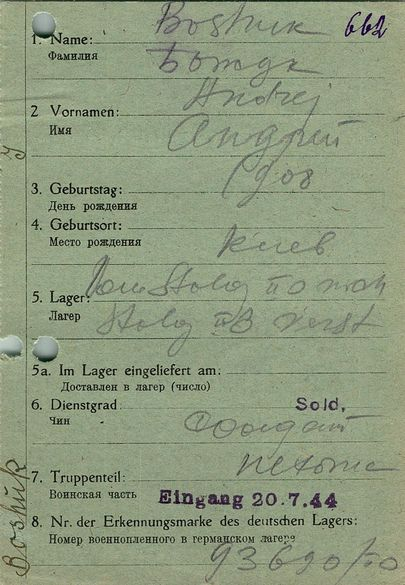 Boshuk 662
1. Name:
Фамилия
Andrej
2 Vornamen:
Имя
Андрій
3. Geburtstag: 1908
День рождения
4. Geburtsort:
Место рождения
Киев
Stalag
5. Lager:
Лагер
Stalag
5a. Im Lager eingeliefert am:
Доставлен в лагер (число)
6. Dienstgrad: Sold,
Чин
Солдат
7. Truppenteil:
Воинская часть
Eingang 20.7.44
8. Nr. der Erkennungsmarke des deutschen Lagers:
Номер военнопленного в германском лагере
93690
Boshuk